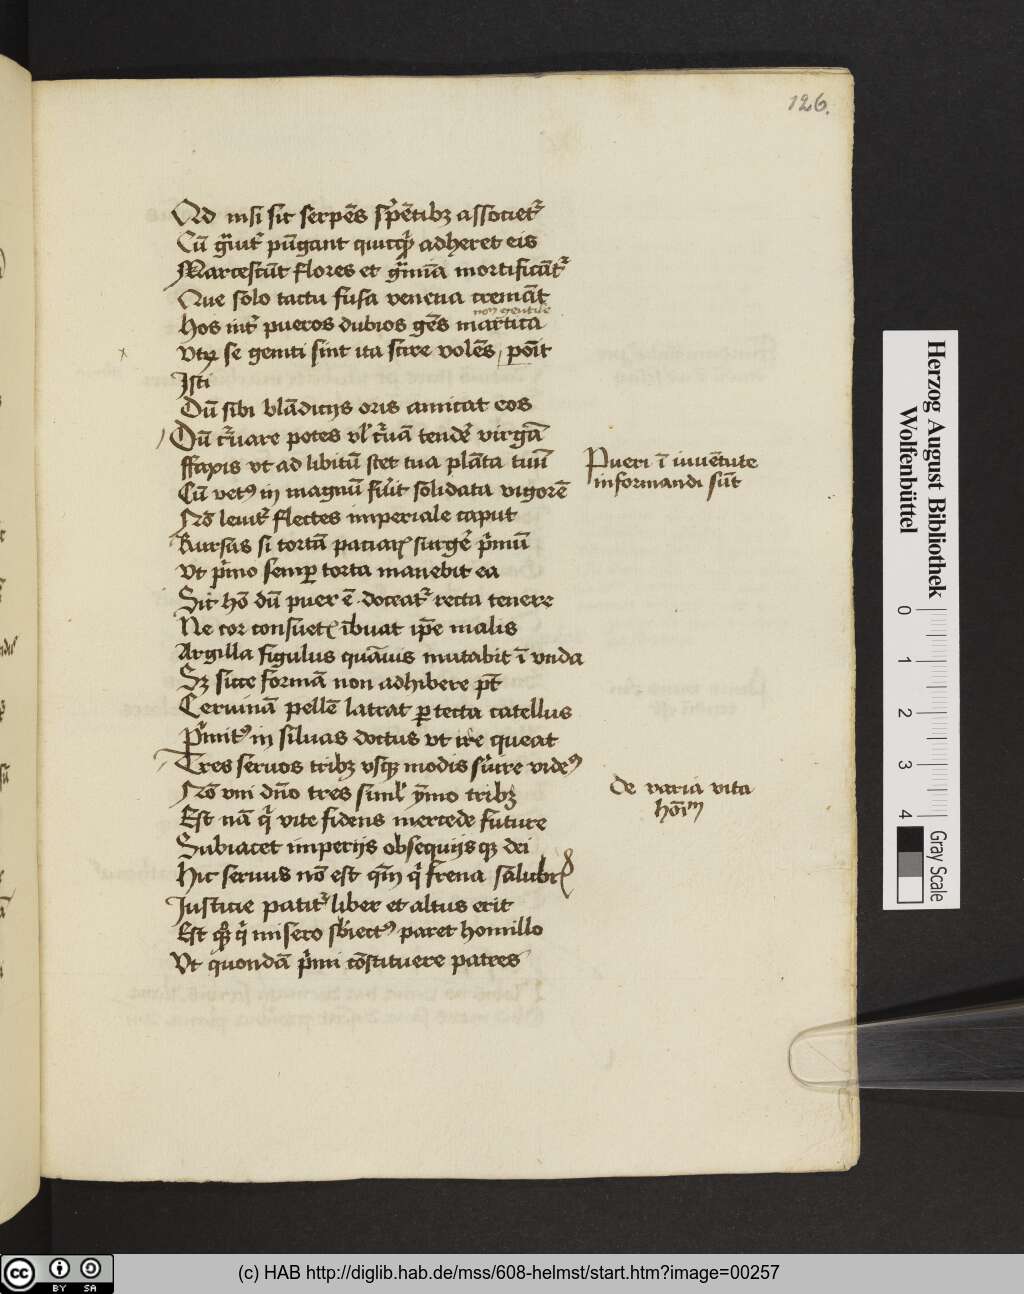 126.
Ad nisi sit serpēs sp̄ētibꝫ associetᷣ
Cū gͣuitᷣ pūgant quicqͣ adheret eis
Marcescūt flores et gͣmīa mortificātᷣ
Que solo tactu fusa venena cremāt
non gentile
Hos intᷣ pueros dubios gēs martica
vtꝝ se geniti sint ita scire volēs pōit
Isti
Dū sibi blādicijs oris amicat eos
Dū cͬuare potes vl̓ cͬuā tendē virgā
ffaxis vt ad libitū stet tua plāta tuū
Cū vetꝰ in magnū fuͥit solidata vigorē
Nō leuitᷣ flectes imperiale caput
Rursus si tortā paciarꝭ surgē pͥmū
vt pͥmo semꝑ torta manebit ea
Sic hō dū puer ē doceatᷣ recta tenere
Ne cor consuetꝭ ībuat ip̄e malis
Argilla figulus quāuis mutabit ī vnda
Sꝫ sicce formā non adhibere pt̄
Ceruinā pellē latrat ꝑ tecta catellus
pͥmitꝰ in siluas doctus vt ire queat
Tres seruos tribꝫ vsqꝫ modis suͥire videꝰ
Nō vni dn̄o tres siml̓ ymo tribꝫ
Est nā qͥ vite fidens mercede future
Subiacet imperijs obsequijsqꝫ dei
Hic seruus nō est qm̄ qͥ frena salubrꝭ
Iusticie patitᷣ liber et altus erit
Est qͦqꝫ qͥ misero sb̓iectꝰ paret homillo
Vt quondā pͥmi cōstituere patres
Pueri ī iuuētute
informandi sūt
De varia vita
hōīm
Herzog August Bibliothek
Wolfenbüttel
0 1 2 3 4
Gray Scale
cc BY SA
(c) HAB http://diglib.hab.de/mss/608-helmst/start.htm?image=00257